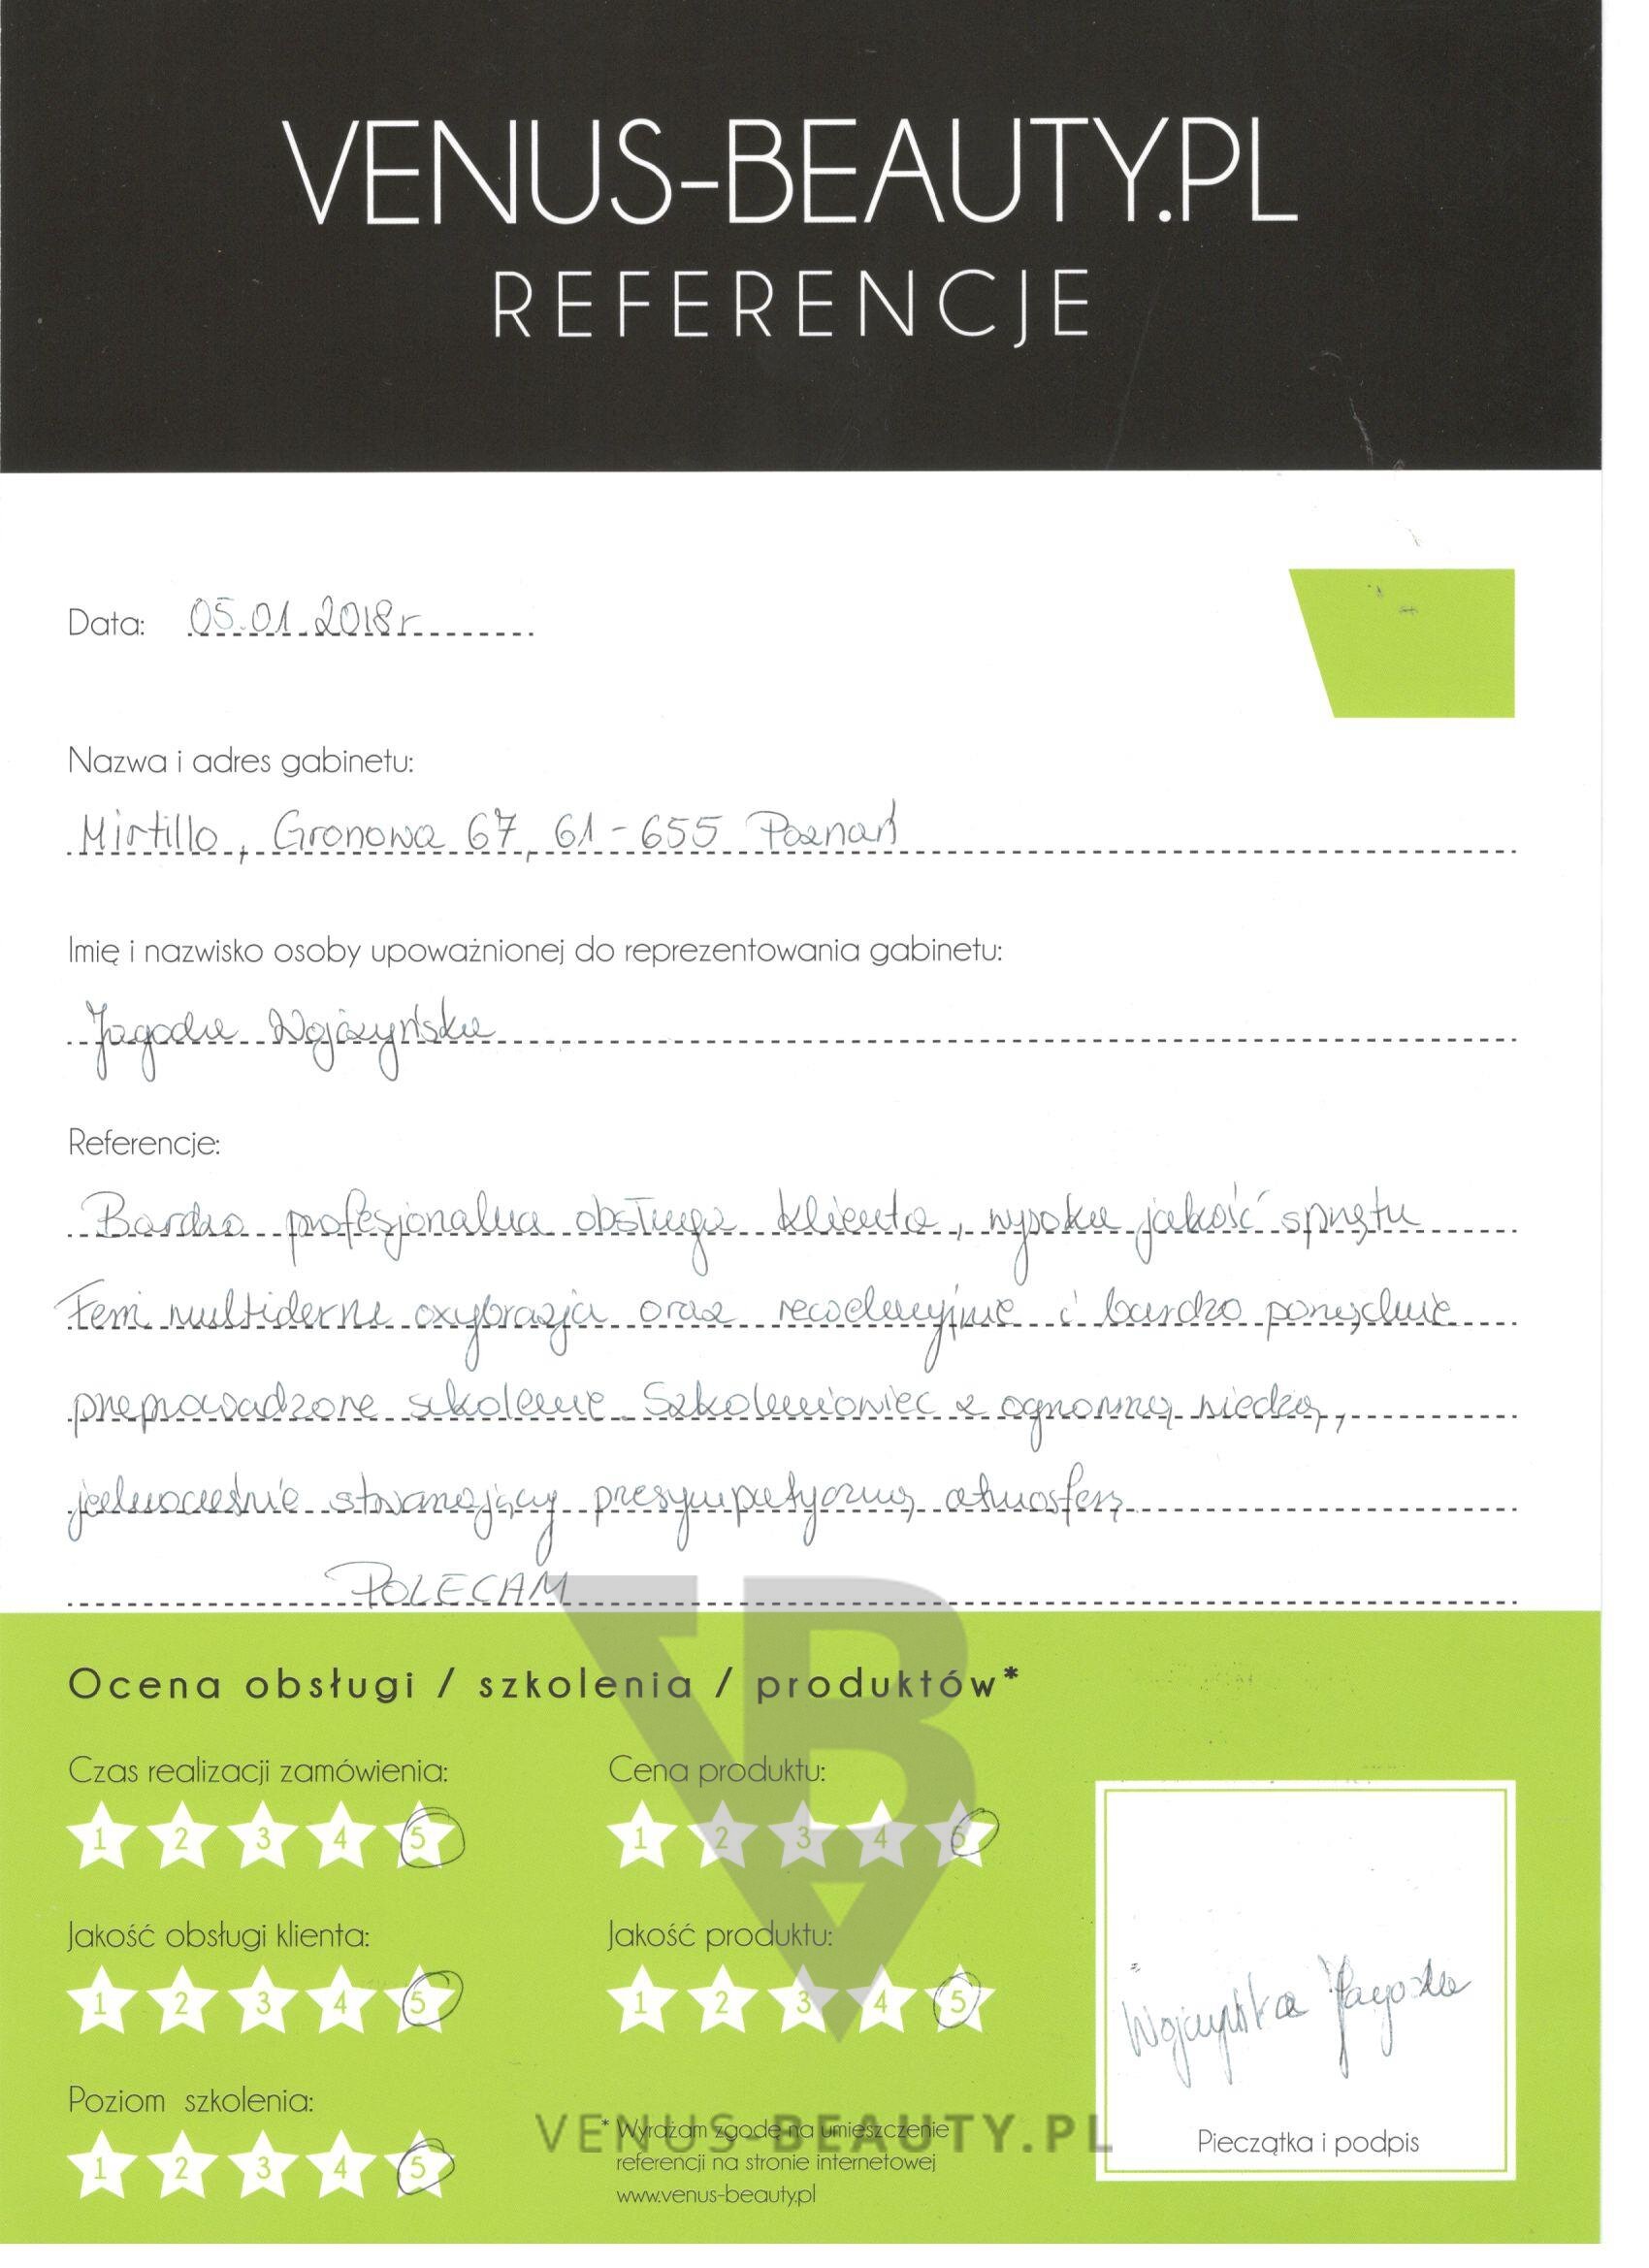 VENUS-BEAUTY.PL
REFERENCJE
Data: 05.01.2018r
Nazwa i adres gabinetu:
Mirtillo, Gronowa 67, 61-655 Poznań
Imię i nazwisko osoby upoważnionej do reprezentowania gabinetu:
Jagoda Wojczyńska
Referencje:
Bardzo profesjonalna obsługa klienta, wysoka jakość sprzętu
Femi multiderme oxybrazja oraz rewelacyjnie i bardzo porządnie
przeprowadzone szkolenie. Szkoleniowiec z ogromną wiedzą,
jednocześnie stwarzający przesympatyczną atmosferę
POLECAM
Ocena obsługi / szkolenia / produktów*
Czas realizacji zamówienia: Cena produktu:
1 2 3 4 5 1 2 3 4 5
Jakość obsługi klienta: Jakość produktu:
1 2 3 4 5 1 2 3 4 5
Wojczyńska Jagoda
Poziom szkolenia:
1 2 3 4 5
VENUS-BEAUTY.PL
* Wyrażam zgodę na umieszczenie
referencji na stronie internetowej
www.venus-beauty.pl
Pieczątka i podpis